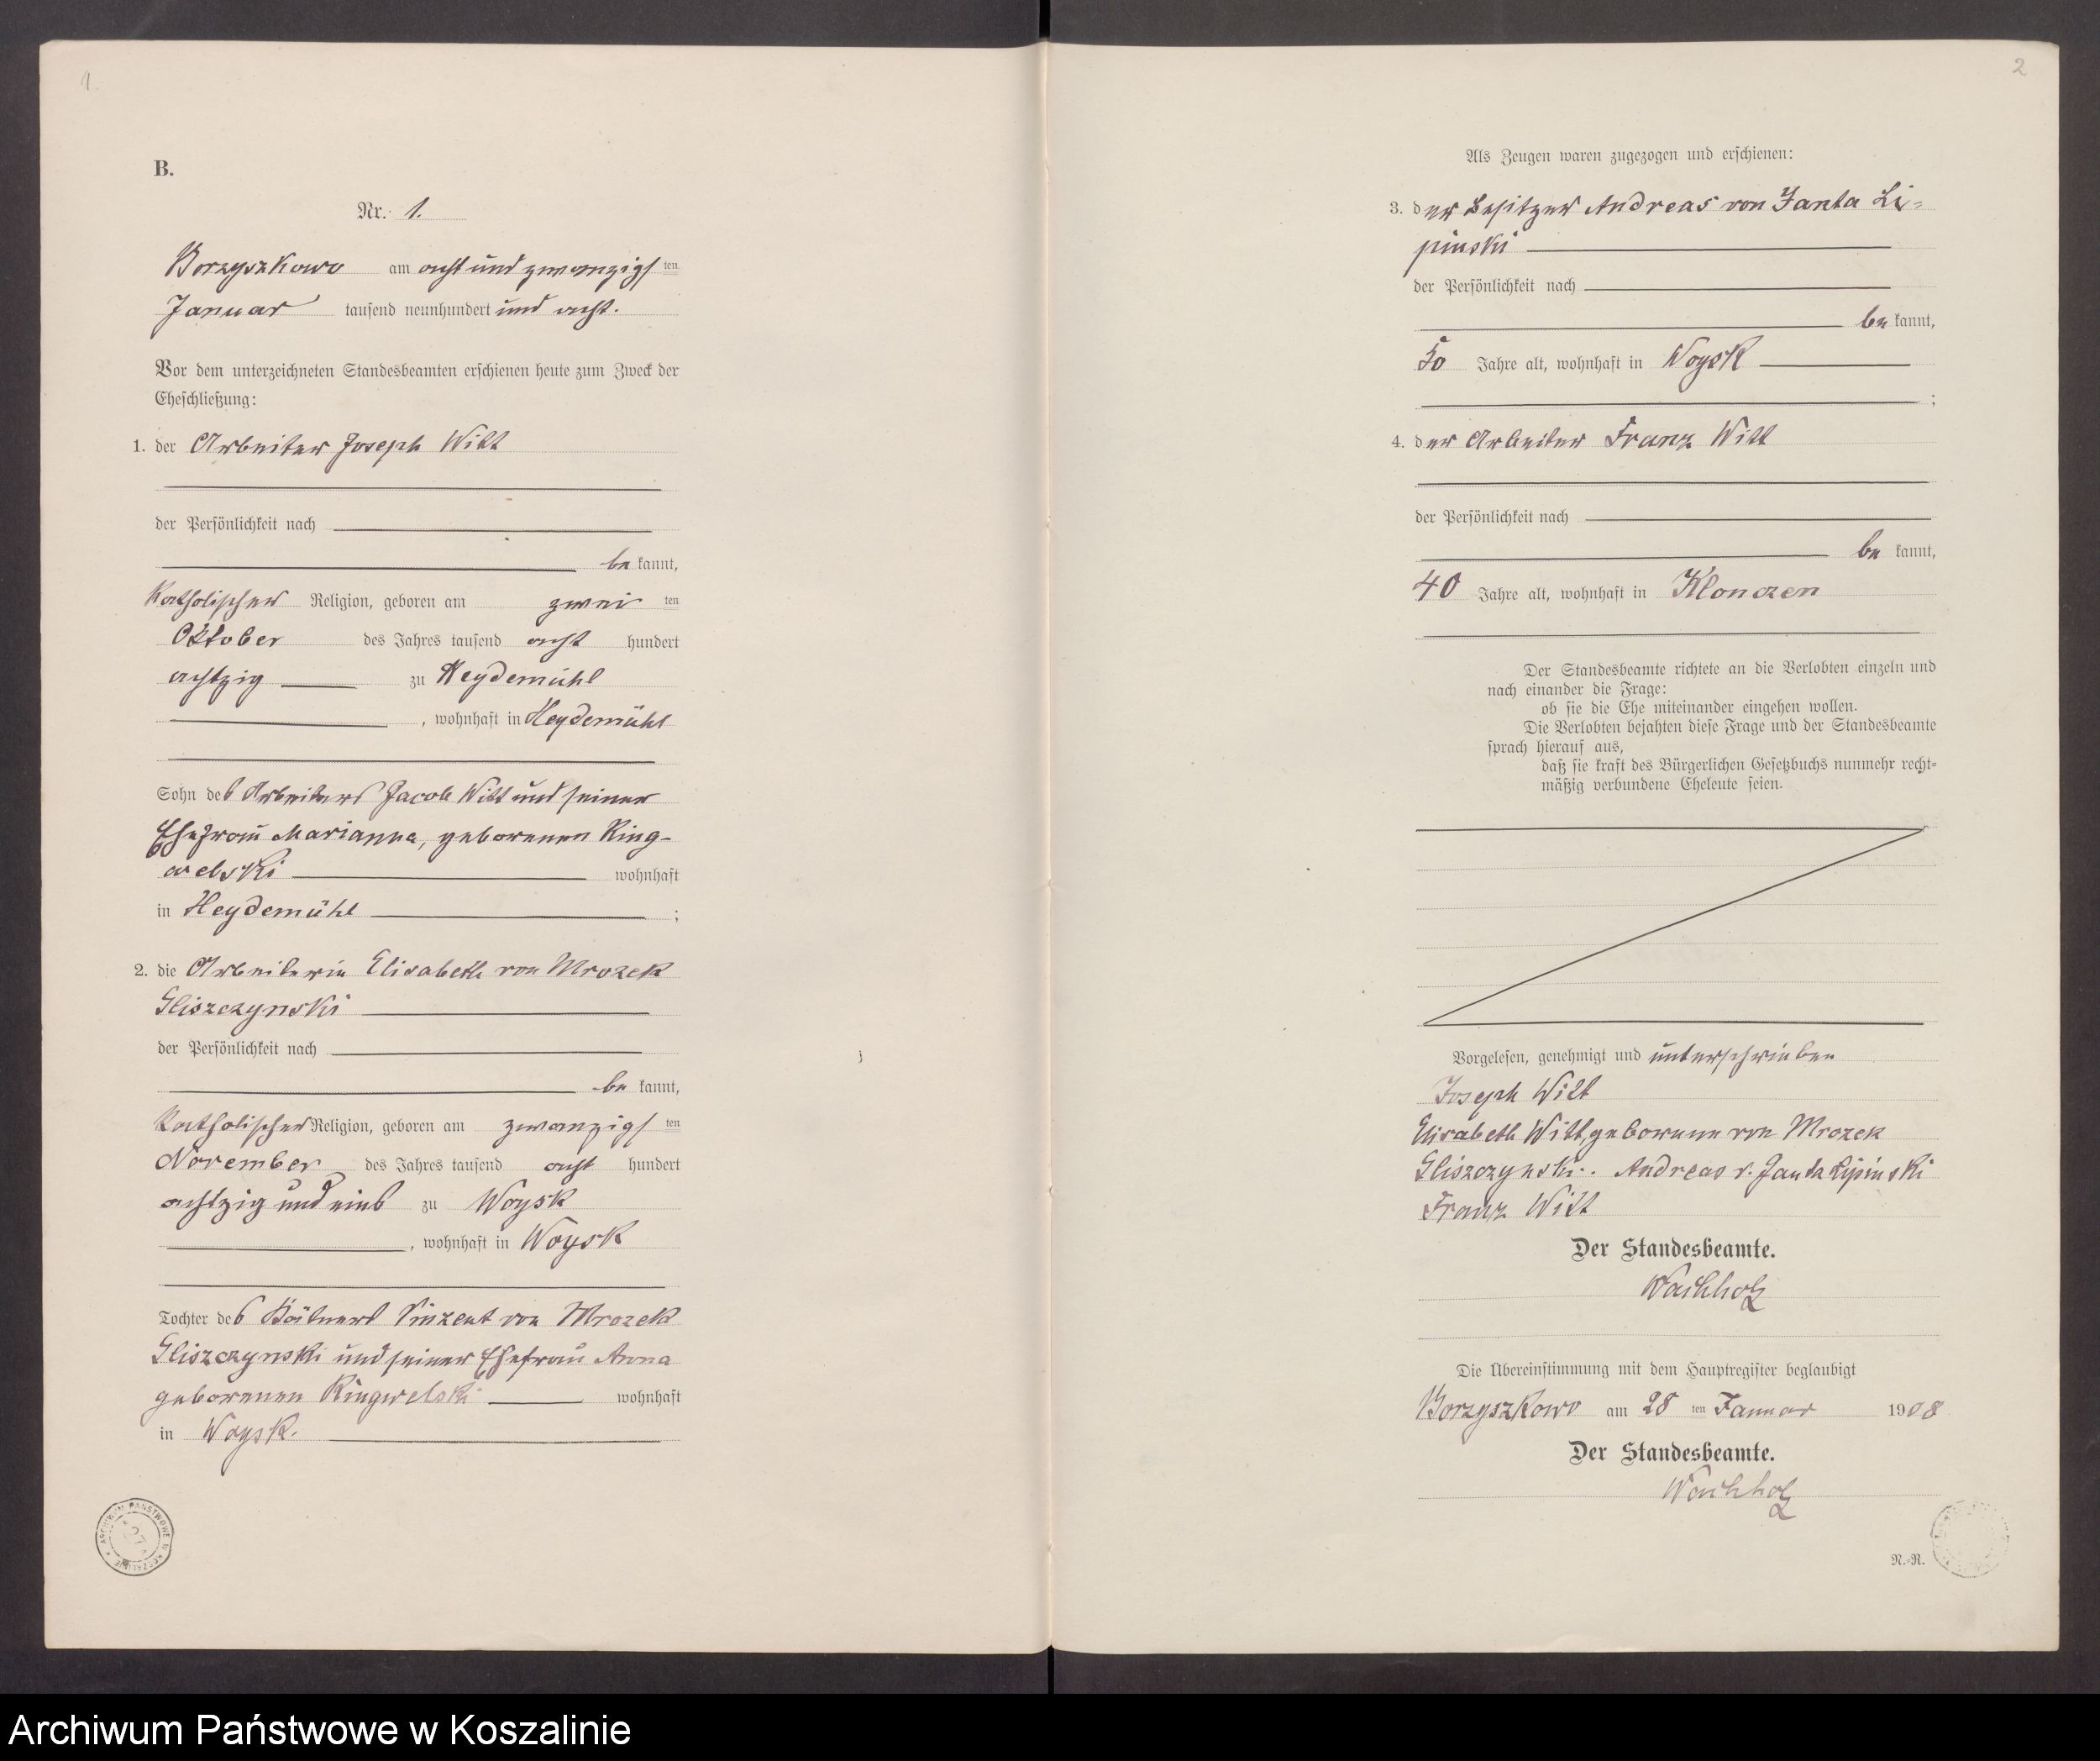 1
B.
Nr. 1.
Borzyszkowo am acht und zwanzigsten
Januar tausend neunhundert und acht.
Vor dem unterzeichneten Standesbeamten erschienen heute zum Zweck der
Eheschließung:
1. der Arbeiter Joseph Witt
der Persönlichkeit nach
bekannt,
katholischer Religion, geboren am zweiten
Oktober des Jahres tausend acht hundert
achtzig zu Heydemühl
, wohnhaft in Heydemühl
Sohn des Arbeiters Jacob Witt und seiner
Ehefrau Marianna, geborenen Ring-
welski wohnhaft
in Heydemühl ;
2. die Arbeiterin Elisabeth von Mrozek
Gliszczynski
der Persönlichkeit nach
bekannt,
katholischer Religion, geboren am zwanzigsten
November des Jahres tausend acht hundert
achtzig und eins zu Woysk
, wohnhaft in Woysk
Tochter des Kätners Vinzent von Mrozek
Gliszczynski und seiner Ehefrau Anna
geborenen Ringwelski wohnhaft
in Woysk.
2
Als Zeugen waren zugezogen und erschienen:
3. der Besitzer Andreas von Janta Li=
pinski
der Persönlichkeit nach
bekannt,
50 Jahre alt, wohnhaft in Woysk
;
4. der Arbeiter Franz Witt
der Persönlichkeit nach
bekannt,
40 Jahre alt, wohnhaft in Klonczen
Der Standesbeamte richtete an die Verlobten einzeln und
nach einander die Frage:
ob sie die Ehe miteinander eingehen wollen.
Die Verlobten bejahten diese Frage und der Standesbeamte
sprach hierauf aus,
daß sie kraft des Bürgerlichen Gesetzbuchs nunmehr recht=
mäßig verbundene Eheleute seien.
Vorgelesen, genehmigt und unterschrieben
Joseph Witt
Elisabeth Witt, geborene von Mrozek
Gliszczynski. Andreas v. Janta Lipinski
Franz Witt
Der Standesbeamte.
Wachholz
Die Übereinstimmung mit dem Hauptregister beglaubigt
Borzyszkowo am 28ten Januar 1908
Der Standesbeamte.
Wachholz
N.-R.
ARCHIWUM PAŃSTWOWE W KOSZALINIE
Archiwum Państwowe w Koszalinie